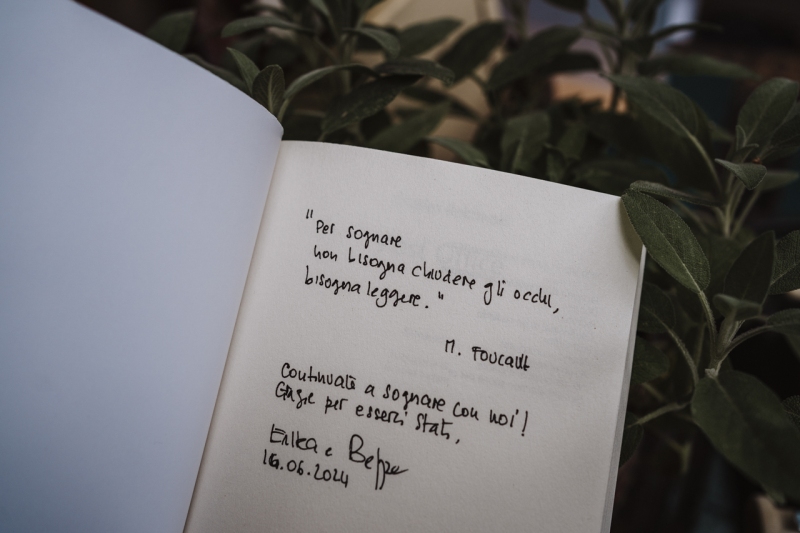 "Per sognare
non bisogna chiudere gli occhi,
bisogna leggere."
M. Foucault
Continuate a sognare con noi!
Grazie per esserci stati,
Erika e Beppe
16.06.2024